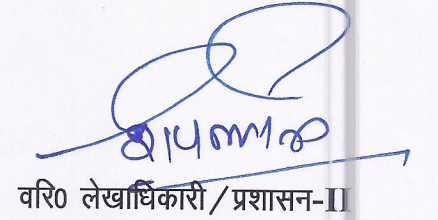 वरि0 लेखाधिकारी / प्रशासन-II